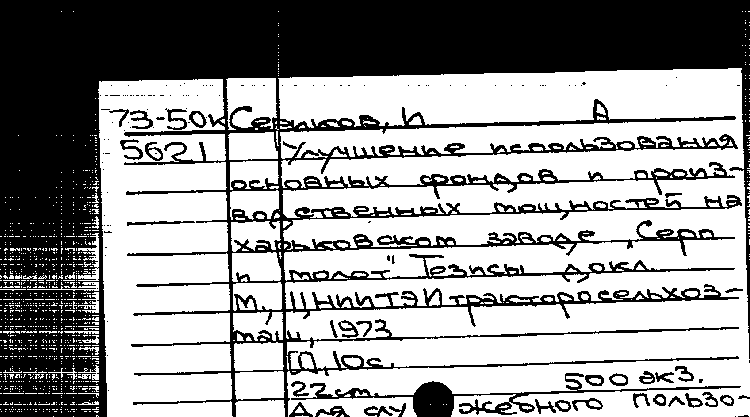 73-50к Сериков, И А
5621 Улучшение использования
основных фондов и произ-
водственных мощностей на
харьковском заводе „Серп
и молот" Тезисы докл.
М., ЦНИИТЭИтракторосельхоз-
маш, 1973
[1], 10с.
22 см. 500 экз.
Для служебного пользо-